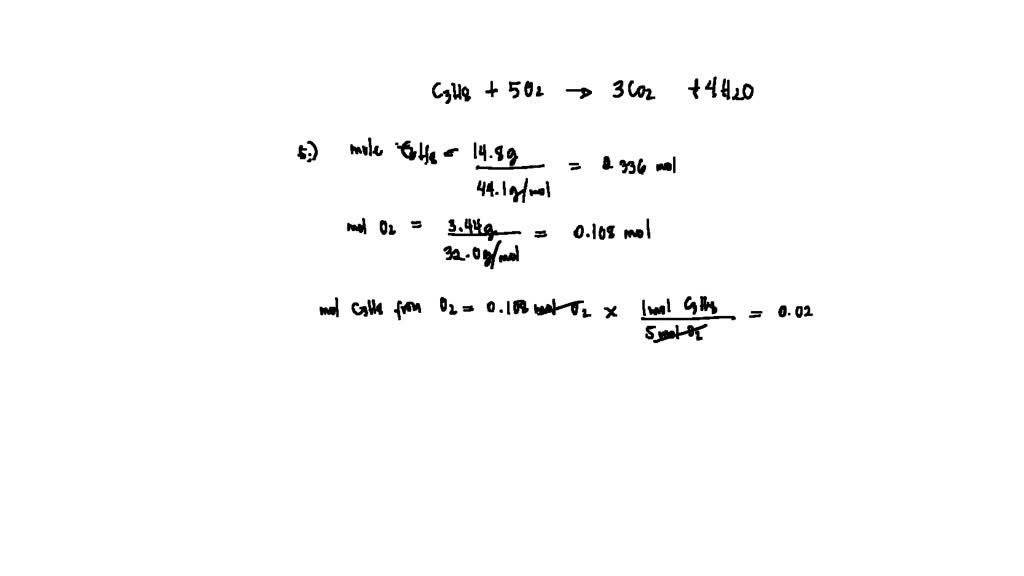 C3H8 + 5O2 → 3CO2 + 4H2O
5.) mole C3H8 = 14.8g / 44.1g/mol = 0.336 mol
mol O2 = 3.44g / 32.0g/mol = 0.108 mol
mol C3H8 from O2 = 0.108 mol O2 × 1mol C3H8 / 5 mol O2 = 0.02